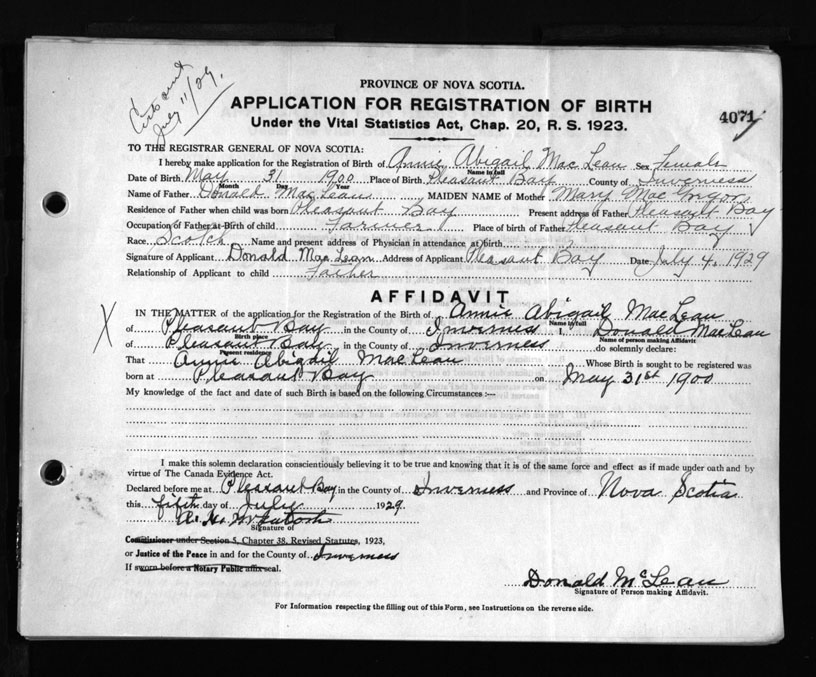 Cert sent
July 11/29.
PROVINCE OF NOVA SCOTIA.
APPLICATION FOR REGISTRATION OF BIRTH
4071
Under the Vital Statistics Act, Chap. 20, R. S. 1923.
TO THE REGISTRAR GENERAL OF NOVA SCOTIA:
I hereby make application for the Registration of Birth of Annie Abigail Mac Lean Sex Female
Name in full
Date of Birth May 31 1900 Place of Birth Pleasant Bay County of Inverness
Month Day Year
Name of Father Donald Mac Lean MAIDEN NAME of Mother Mary Mac
Residence of Father when child was born Pleasant Bay Present address of Father Pleasant Bay
Occupation of Father at Birth of child Farmer Place of birth of Father Pleasant Bay
Race Scotch Name and present address of Physician in attendance at birth
Signature of Applicant Donald Mac Lean Address of Applicant Pleasant Bay Date July 4, 1929
Relationship of Applicant to child Father
AFFIDAVIT
X
IN THE MATTER of the application for the Registration of the Birth of Annie Abigail MacLean
Name in full
of Pleasant Bay in the County of Inverness I, Donald MacLean
Birth place Name of person making Affidavit
of Pleasant Bay in the County of Inverness do solemnly declare:
Present residence
That Annie Abigail MacLean Whose Birth is sought to be registered was
born at Pleasant Bay on May 31st 1900
My knowledge of the fact and date of such Birth is based on the following Circumstances :—
I make this solemn declaration conscientiously believing it to be true and knowing that it is of the same force and effect as if made under oath and by
virtue of The Canada Evidence Act.
Declared before me at Pleasant Bay in the County of Inverness and Province of Nova Scotia
this fifth day of July 1929
McIntosh
Signature of
Commissioner under Section 5, Chapter 38, Revised Statutes, 1923,
or Justice of the Peace in and for the County of Inverness
If sworn before a Notary Public affix seal.
Donald McLean
Signature of Person making Affidavit.
For Information respecting the filling out of this Form, see Instructions on the reverse side.